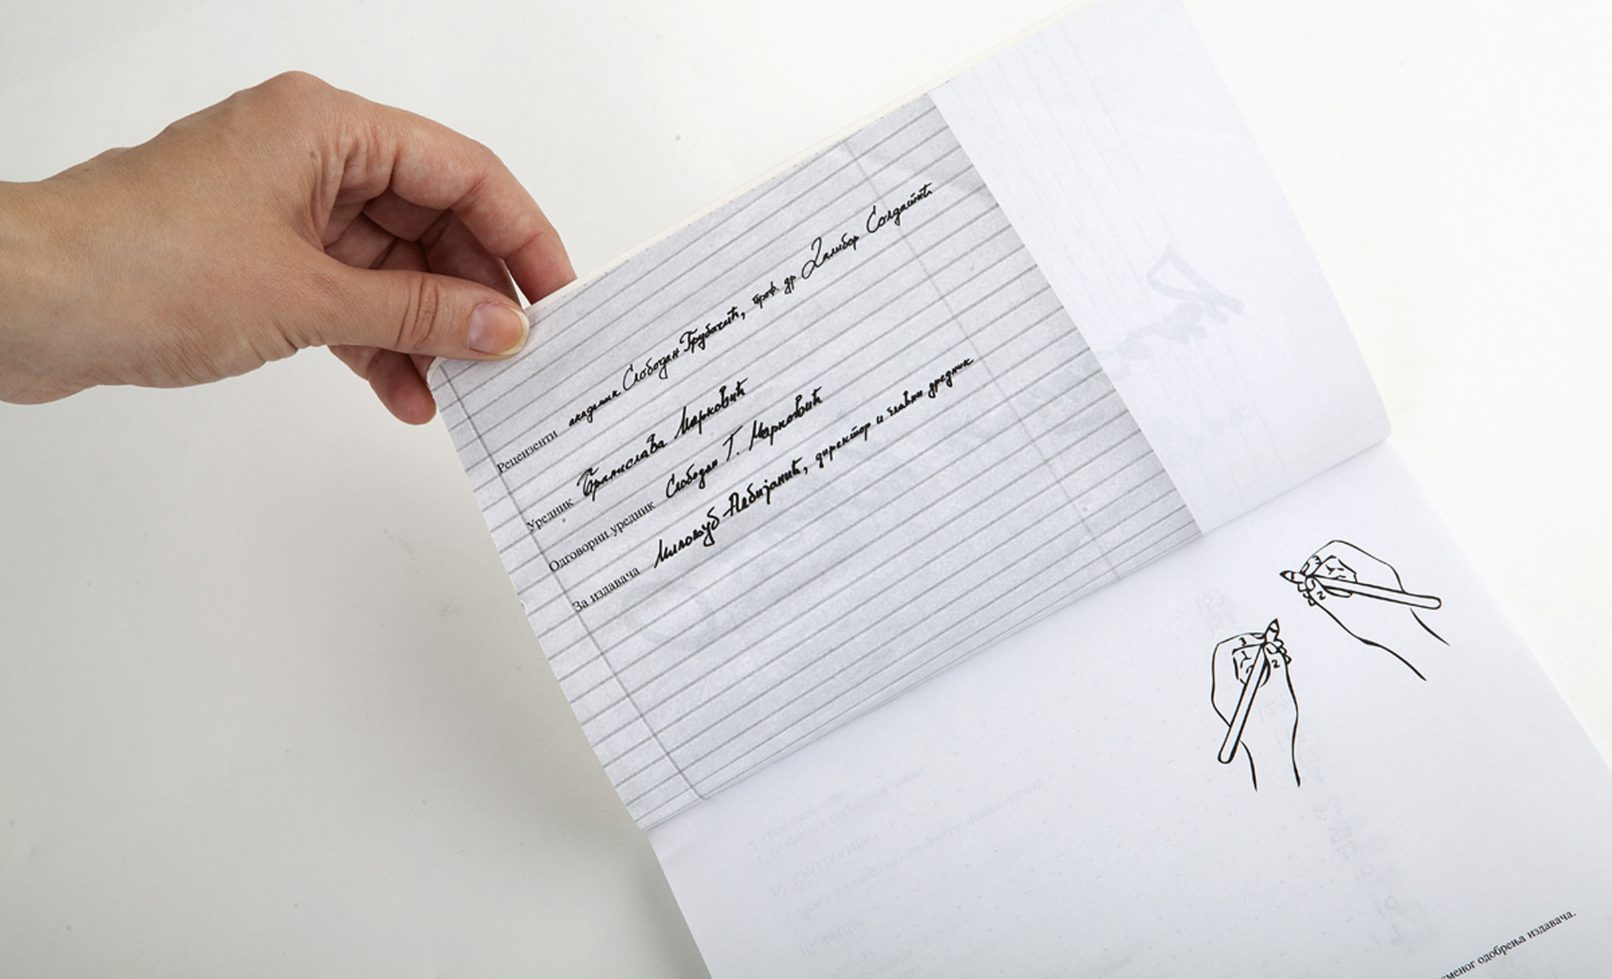 Рецензенти академик Слободан Грубачић, проф. др Далибор Солдатић
Уредник Бранислава Марковић
Одговорни уредник Слободан Г. Марковић
За издавача Милољуб Албијанић, директор и главни уредник
сменог одобрења издавача.